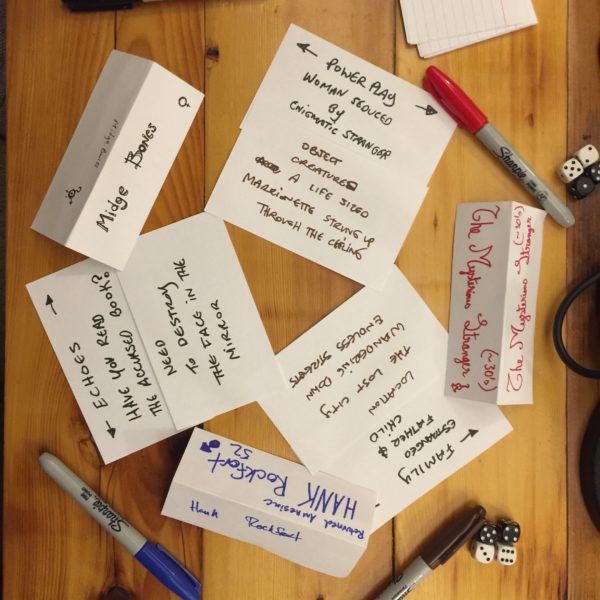 POWER PLAY
WOMAN SEDUCED
BY
ENIGMATIC STRANGER
OBJECT
CREATURES
A LIFE SIZED
MARRIONETTE STRUNG UP
THROUGH THE CEILING
Midge Bones
ECHOES
HAVE YOU READ BOOK?
THE ACCURSED
NEED
TO DESTROY
THE FACE IN THE
MIRROR
LOCATION
THE LOST CITY
WANDERING DOWN
ENDLESS STREETS
FAMILY
ESTRANGED
FATHER &
CHILD
The Mysterious Stranger (~30's)
The Mysterious Stranger (~30's)
Returned Amnesiac
HANK Rockfort
52
Hank Rockfort
Sharpie
Sharpie